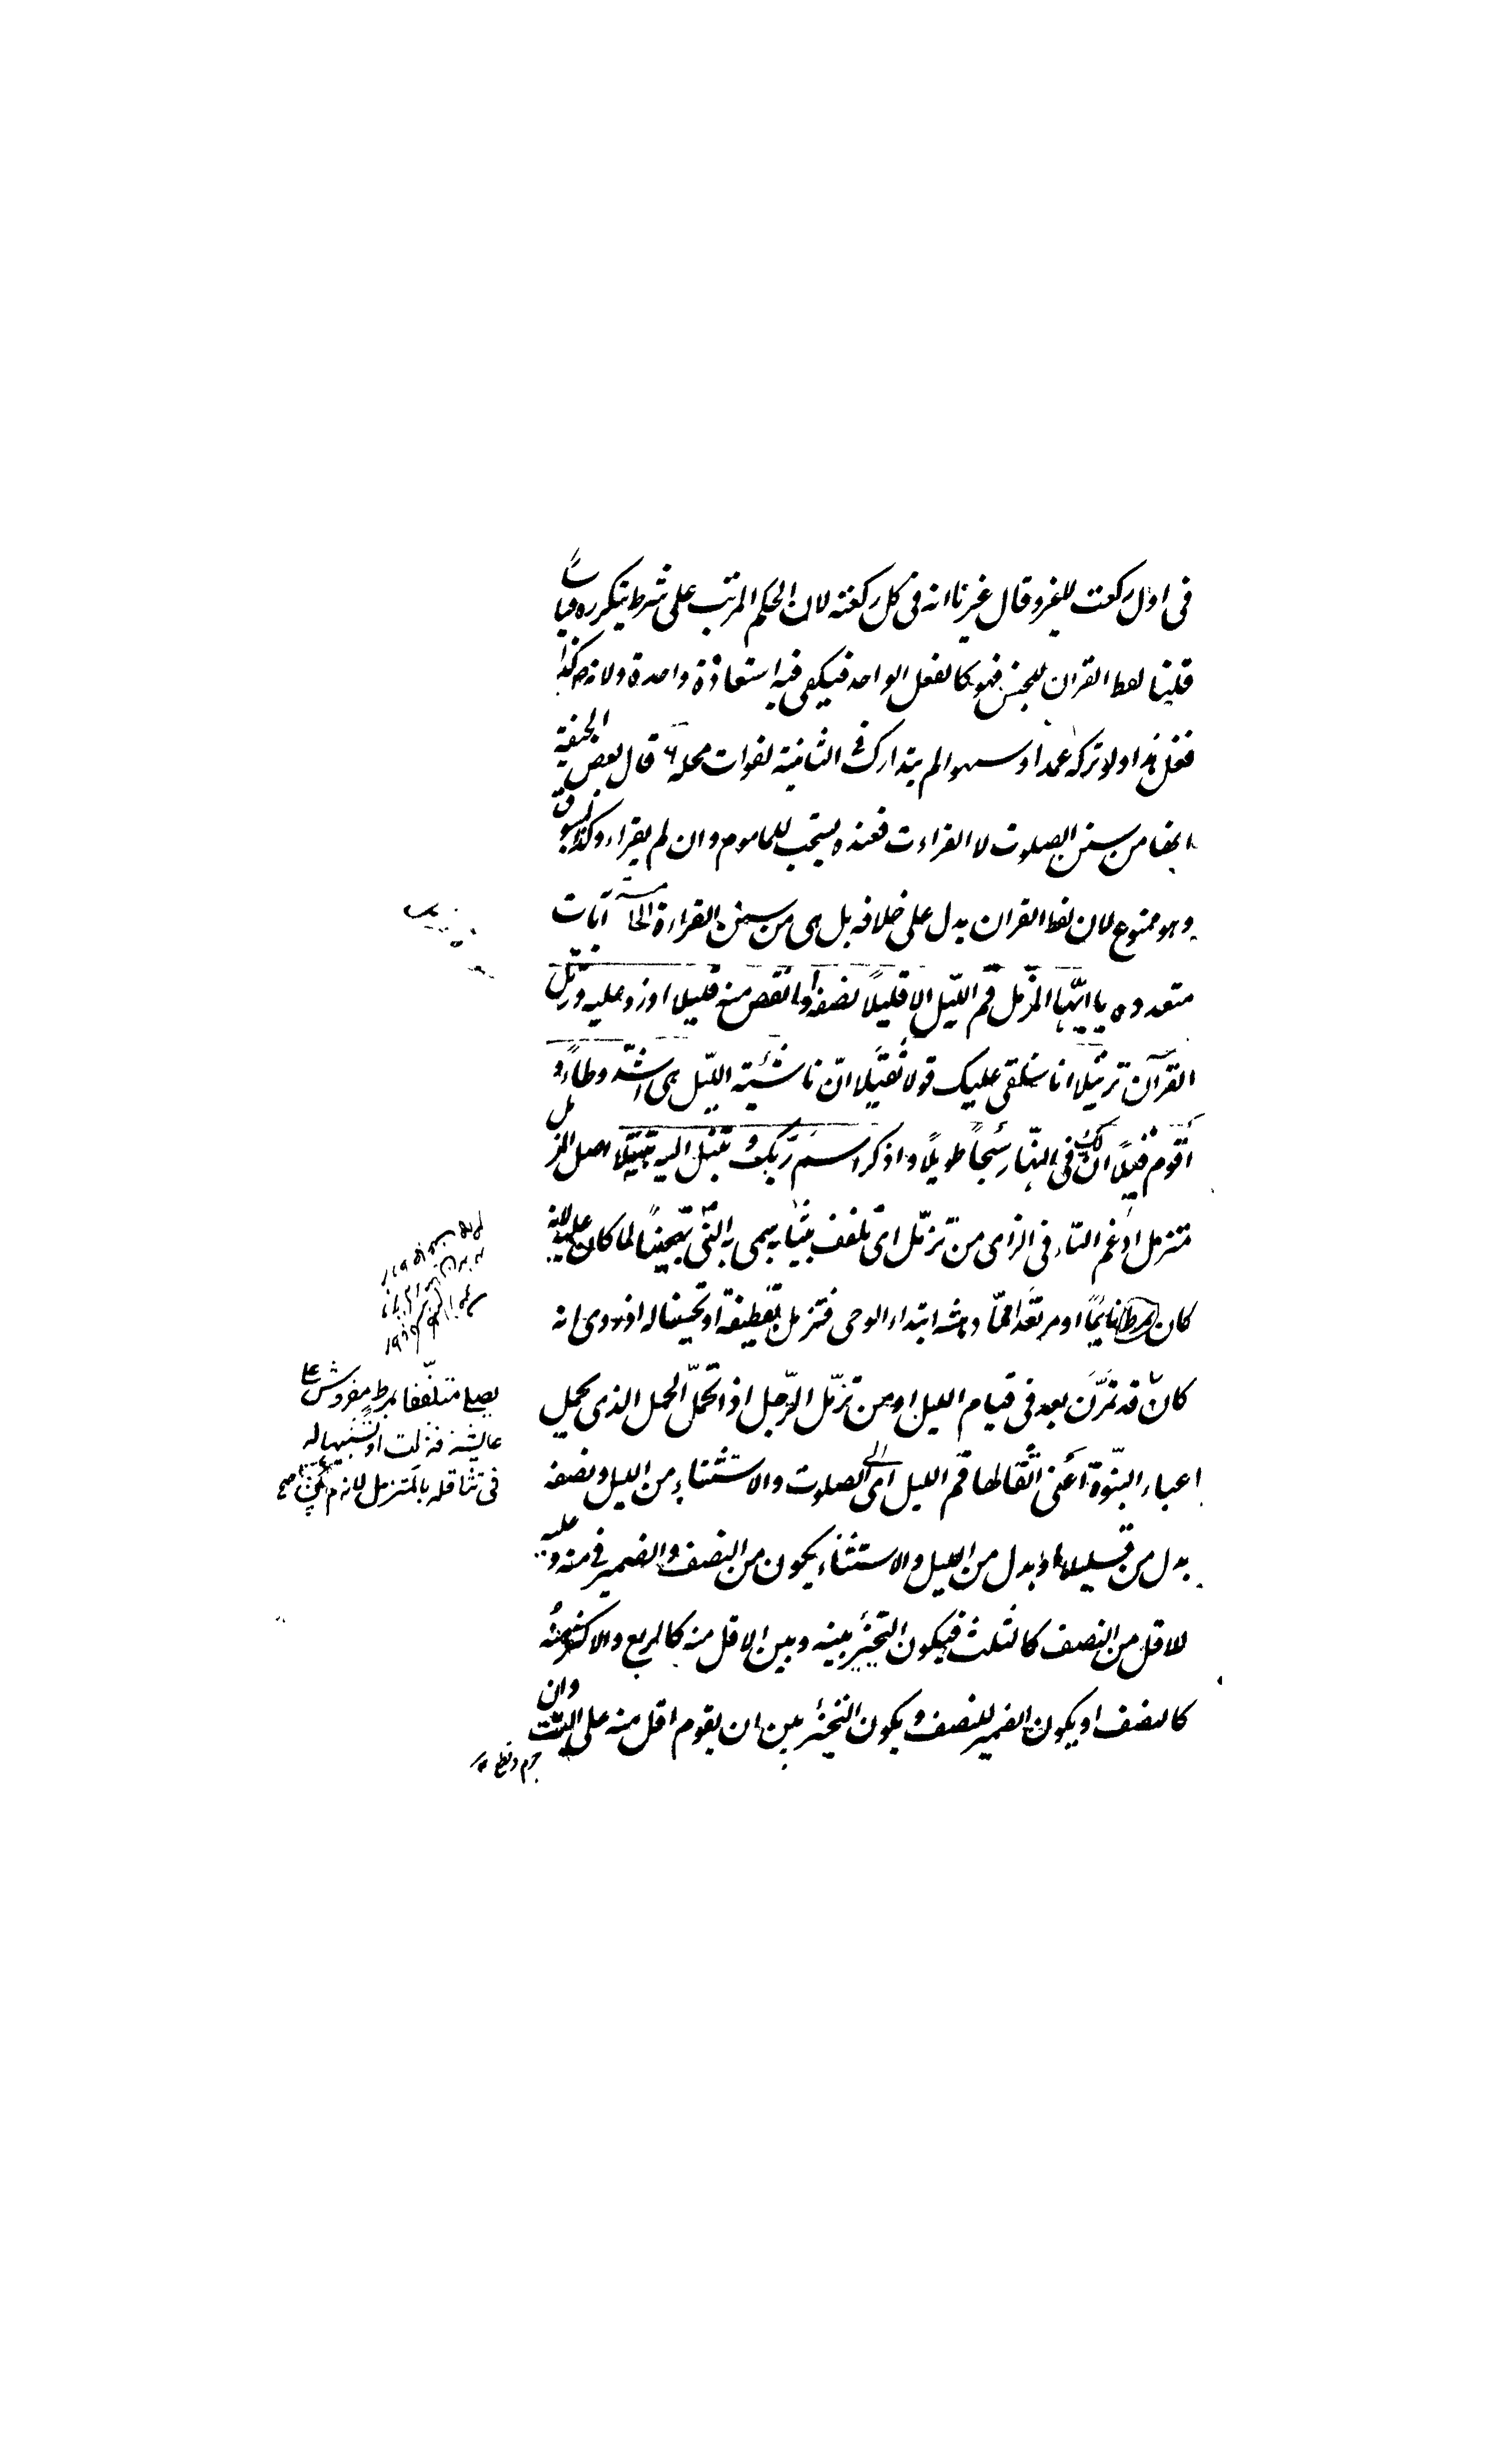 فى اول ركعت للغير وقال غيرنا انه فى كل ركعة لان الحكم المرتب على شرط يتكرره قياساً
قلنا لفظ القران للجنس فهو كالفعل الواحد فيكفى فيه استعاذة واحدة ولانه م كذا
فعل هذا ولو تركه عمدا او سهوا لم يتدارك فى الثانية لفوات محله قال بعض الحنفية
انها من سنن الصلوت لا القراءت فعنده يستحب للماموم وان لم يقراء وكذا المسبوق
وهو ممنوع لان لفظ القران يدل على خلافه بل هى من سنن القراءة آيات
متعدده يا ايّها المزّمل قم اللّيل الا قليلاً نصفه او انقص منه قليلا او زد عليه ورتّل
القرآن ترتيلا انا سنلقى عليك قولا ثقيلًا انّ ناشئة اللّيل هى اشدّ وطاءً و
أقوم قيلًا ان لك فى النّهار سبحاً طويلًا واذكر اسم ربّك و تبتّل اليه تبتيلًا اصل المزمل
متزمل ادغم التاء فى الزاى من تزمّل اى تلفف بثيابه سمى به النّبى تهجيناً لما كان عليه لانه
كان نايماً او مرتعدا مما دهشه ابتداء الوحى فتزمل بقطيفة او تحسينا له اذ روى انه
كان قد تمرّن بعد فى قيام الليل او من تزمّل الرّجل اذا تحمّل الحمل الذى يحمل
اعباء النبّوة أعنى أثقالها قم الليل اى الى الصلوت والاستثناء من الليل ونصفه
بدل من قليلا او بدل من الليل والاستثناء يكون من النصف والضمير فى منه و عليه
للاقل من النصف كالثلث فيكون التخيير بينه وبين الاقل منه كالربع والاكثر منه
كالنصف او يكون الضمير للنصف و يكون التخيير بين ان يقوم اقل منه على البتّ وان
يصلى متلففا بمرط مفروش على
عايشة فنزلت او تشبيها له
فى تثاقله بالمتزمل لانه م صح
جزم وقطع